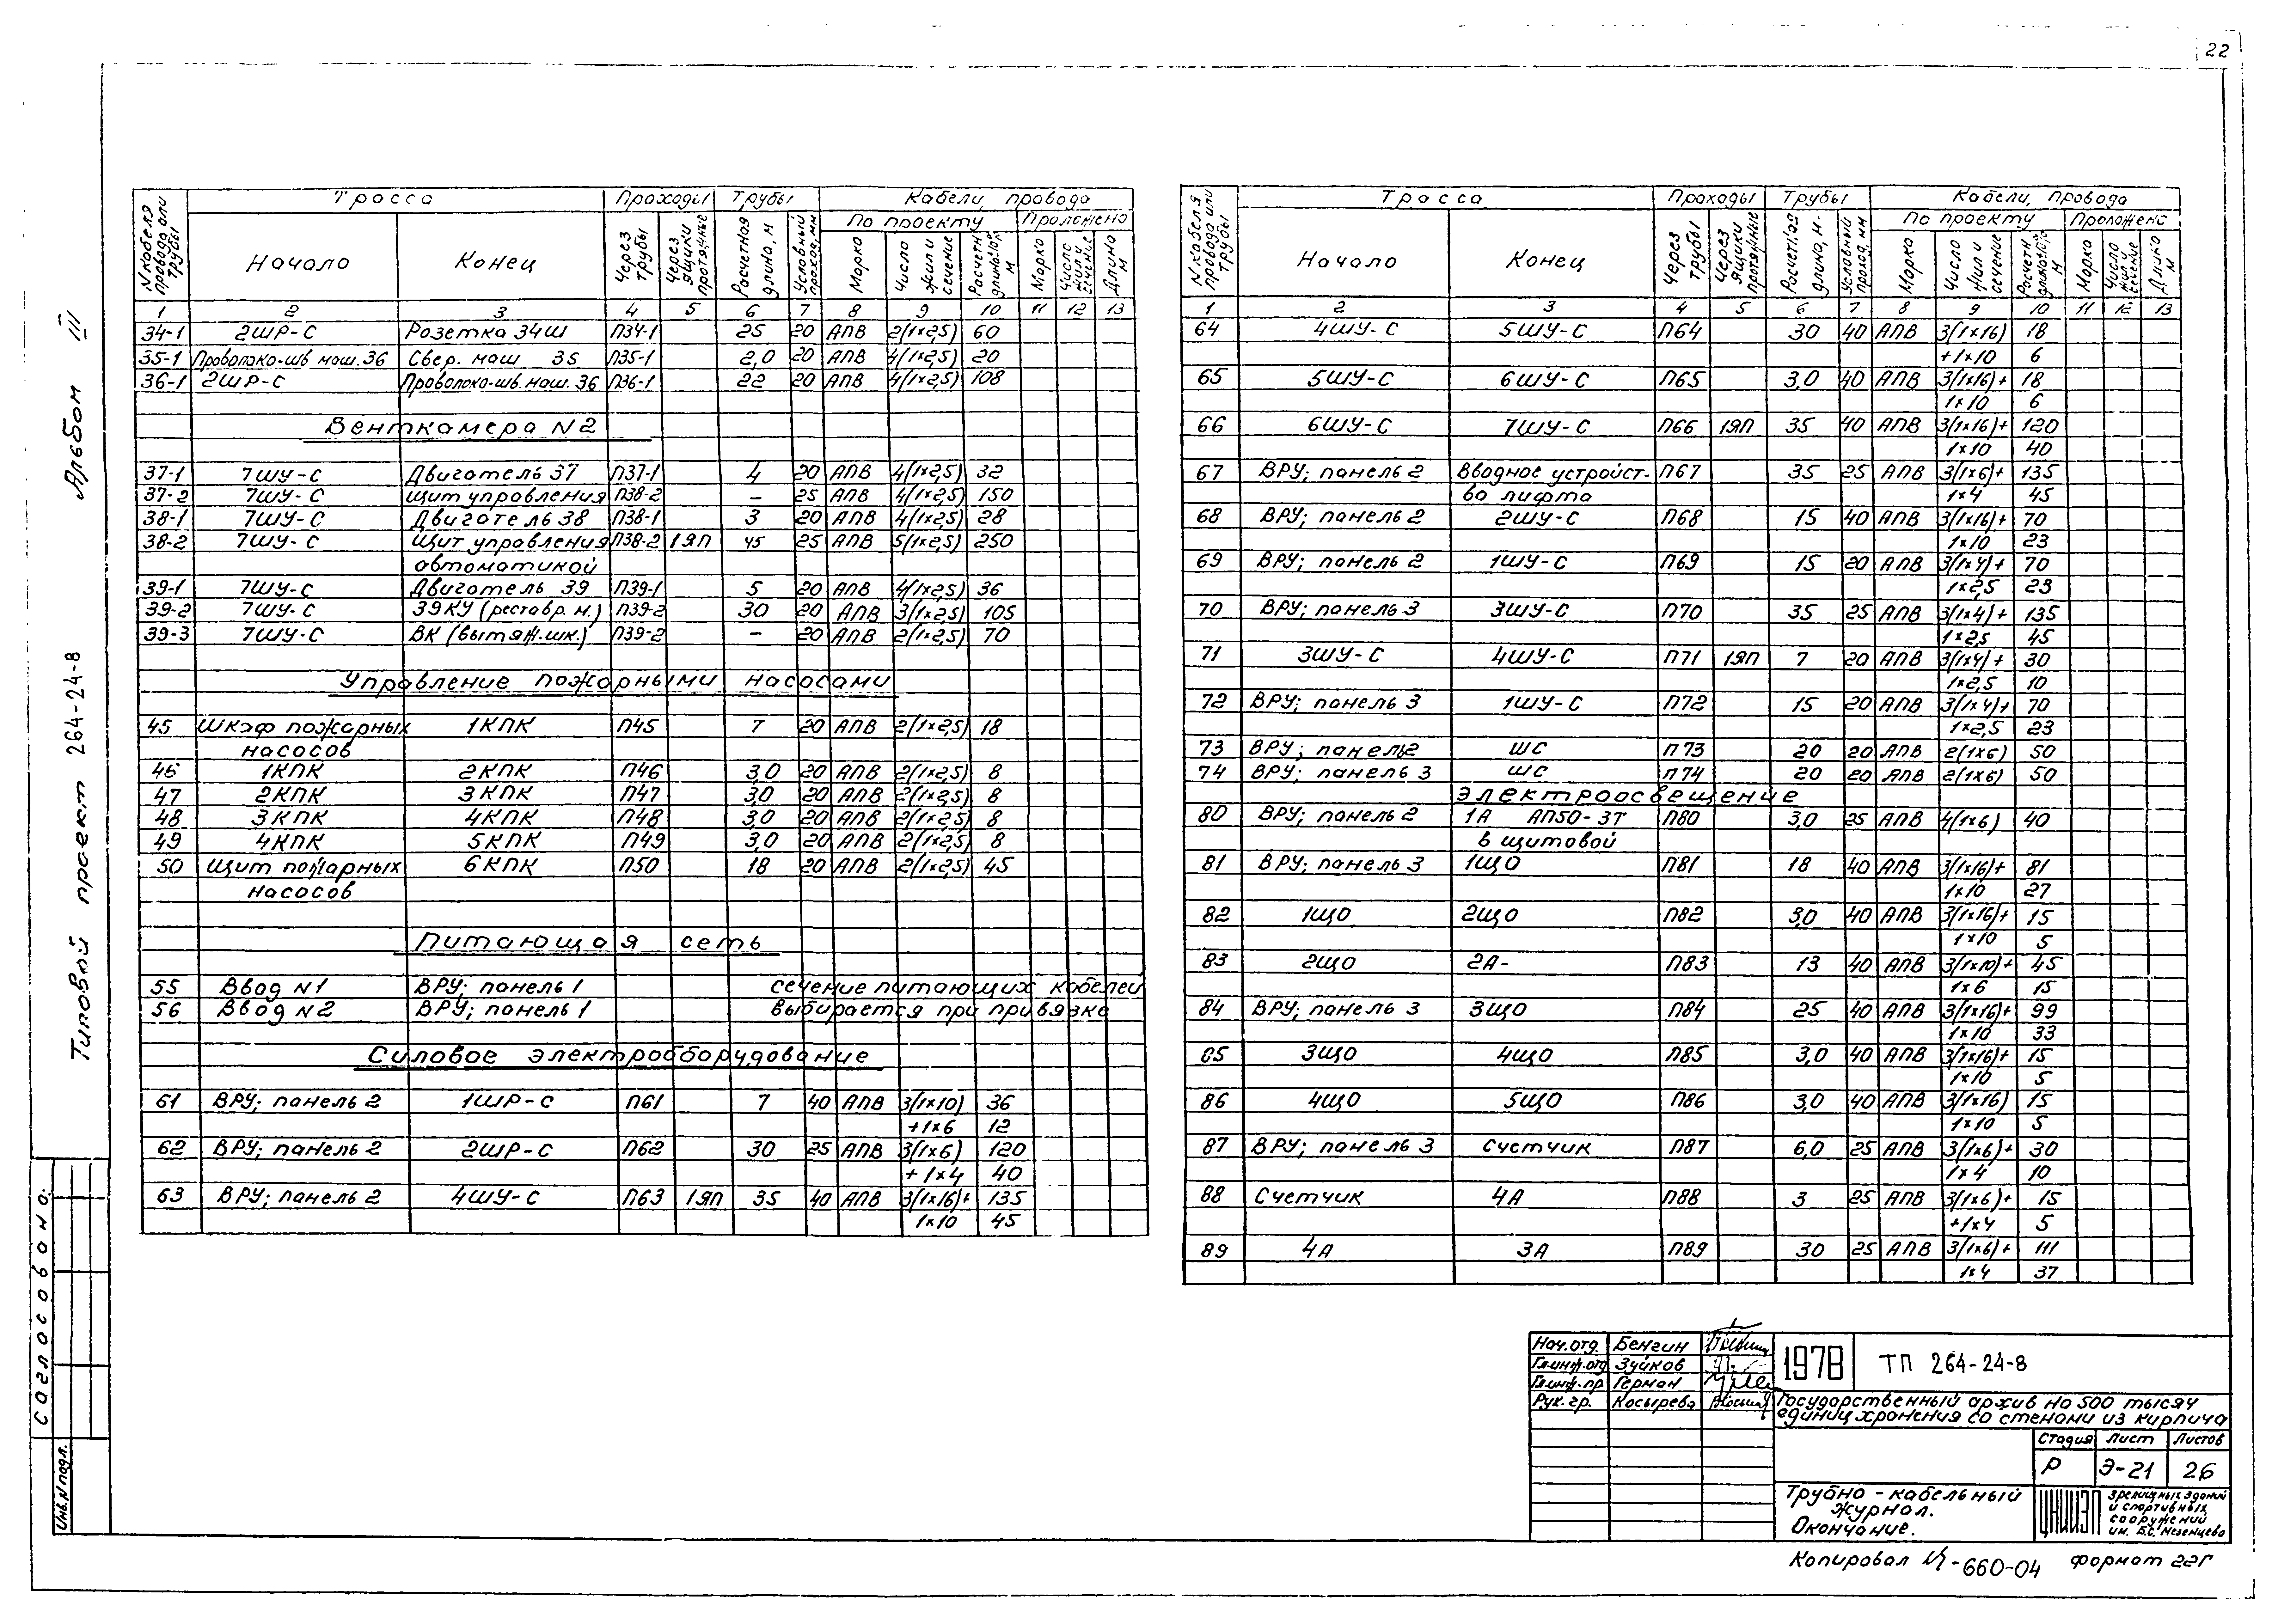 22
Типовой проект 264-24-8 Альбом III
Согласовано:
Инв.N подл.
N кабеля провода или трубы | Трасса | Проходы | Трубы | Кабели, провода
По проекту | Проложено
Начало | Конец | Через трубы | Через ящики протяжные | Расчетная длина, м | Условный проход, мм | Марка | Число жил и сечение | Расчетн длина, м | Марка | Число жил и сечение | Длина м
1 2 3 4 5 6 7 8 9 10 11 12 13
34-1 2ШР-С Розетка 34Ш П34-1 25 20 АПВ 2(1×2,5) 60
35-1 Проволоко-шв маш. 36 Свер. маш 35 П35-1 2,0 20 АПВ 4(1×2,5) 20
36-1 2ШР-С Проволоко-шв. маш. 36 П36-1 22 20 АПВ 4(1×2,5) 108
Венткамера N2
37-1 7ШУ-С Двигатель 37 П37-1 4 20 АПВ 4(1×2,5) 32
37-2 7ШУ-С щит управления П38-2 – 25 АПВ 4(1×2,5) 150
38-1 7ШУ-С Двигатель 38 П38-1 3 20 АПВ 4(1×2,5) 28
38-2 7ШУ-С Щит управления П38-2 1ЯП 45 25 АПВ 5(1×2,5) 250
автоматикой
39-1 7ШУ-С Двигатель 39 П39-1 5 20 АПВ 4(1×2,5) 36
39-2 7ШУ-С 39КУ (реставр. м.) П39-2 30 20 АПВ 3(1×2,5) 105
39-3 7ШУ-С ВК (вытяж. шк.) П39-2 – 20 АПВ 2(1×2,5) 70
Управление пожарными насосами
45 Шкаф пожарных 1КПК П45 7 20 АПВ 2(1×2,5) 18
насосов
46 1КПК 2КПК П46 3,0 20 АПВ 2(1×2,5) 8
47 2КПК 3КПК П47 3,0 20 АПВ 2(1×2,5) 8
48 3КПК 4КПК П48 3,0 20 АПВ 2(1×2,5) 8
49 4КПК 5КПК П49 3,0 20 АПВ 2(1×2,5) 8
50 Щит пожарных 6КПК П50 18 20 АПВ 2(1×2,5) 45
насосов
Питающая сеть
55 Ввод N1 ВРУ; панель 1 сечение питающих кабелей
56 Ввод N2 ВРУ; панель 1 выбирается при привязке
Силовое электрооборудование
61 ВРУ; панель 2 1ШР-С П61 7 40 АПВ 3(1×10) 36
+1×6 12
62 ВРУ; панель 2 2ШР-С П62 30 25 АПВ 3(1×6) 120
+1×4 40
63 ВРУ; панель 2 4ШУ-С П63 1ЯП 35 40 АПВ 3(1×16)+ 135
1×10 45
N кабеля провода или трубы | Трасса | Проходы | Трубы | Кабели, провода
По проекту | Проложено
Начало | Конец | Через трубы | Через ящики протяжные | Расчетная длина, м. | Условный проход, мм | Марка | Число жил и сечение | Расчетн длина, м | Марка | Число жил и сечение | Длина м
1 2 3 4 5 6 7 8 9 10 11 12 13
64 4ШУ-С 5ШУ-С П64 30 40 АПВ 3(1×16) 18
+1×10 6
65 5ШУ-С 6ШУ-С П65 3,0 40 АПВ 3(1×16)+ 18
1×10 6
66 6ШУ-С 7ШУ-С П66 1ЯП 35 40 АПВ 3(1×16)+ 120
1×10 40
67 ВРУ; панель 2 Вводное устройст- П67 35 25 АПВ 3(1×6)+ 135
во лифта 1×4 45
68 ВРУ; панель 2 2ШУ-С П68 15 40 АПВ 3(1×16)+ 70
1×10 23
69 ВРУ; панель 2 1ШУ-С П69 15 20 АПВ 3(1×4)+ 70
1×2,5 23
70 ВРУ; панель 3 3ШУ-С П70 35 25 АПВ 3(1×4)+ 135
1×25 45
71 3ШУ-С 4ШУ-С П71 1ЯП 7 20 АПВ 3(1×4)+ 30
1×2,5 10
72 ВРУ; панель 3 1ШУ-С П72 15 20 АПВ 3(1×4)+ 70
1×2,5 23
73 ВРУ; панель 2 ШС П73 20 20 АПВ 2(1×6) 50
74 ВРУ; панель 3 ШС П74 20 20 АПВ 2(1×6) 50
Электроосвещение
80 ВРУ; панель 2 1А АП50-3Т П80 3,0 25 АПВ 4(1×6) 40
в щитовой
81 ВРУ; панель 3 1ЩО П81 18 40 АПВ 3(1×16)+ 81
1×10 27
82 1ЩО 2ЩО П82 3,0 40 АПВ 3(1×16)+ 15
1×10 5
83 2ЩО 2А- П83 13 40 АПВ 3(1×10)+ 45
1×6 15
84 ВРУ; панель 3 3ЩО П84 25 40 АПВ 3(1×16)+ 99
1×10 33
85 3ЩО 4ЩО П85 3,0 40 АПВ 3(1×16)+ 15
1×10 5
86 4ЩО 5ЩО П86 3,0 40 АПВ 3(1×16) 15
1×10 5
87 ВРУ; панель 3 Счетчик П87 6,0 25 АПВ 3(1×6)+ 30
1×4 10
88 Счетчик 4А П88 3 25 АПВ 3(1×6)+ 15
+1×4 5
89 4А 3А П89 30 25 АПВ 3(1×6)+ 111
1×4 37
Нач.отд. Бенгин
Гл.инж.отд Зуйков
Гл.инж.пр. Герман
Рук.гр. Косырева
1978 ТП 264-24-8
Государственный архив на 500 тысяч
единиц хранения со стенами из кирпича
Стадия Лист Листов
Р Э-21 26
Трубно-кабельный
журнал.
Окончание.
ЦНИИЭП зрелищных зданий
и спортивных
сооружений
им. Б.С. Мезенцева
Копировал Ц-660-04 формат 22Г